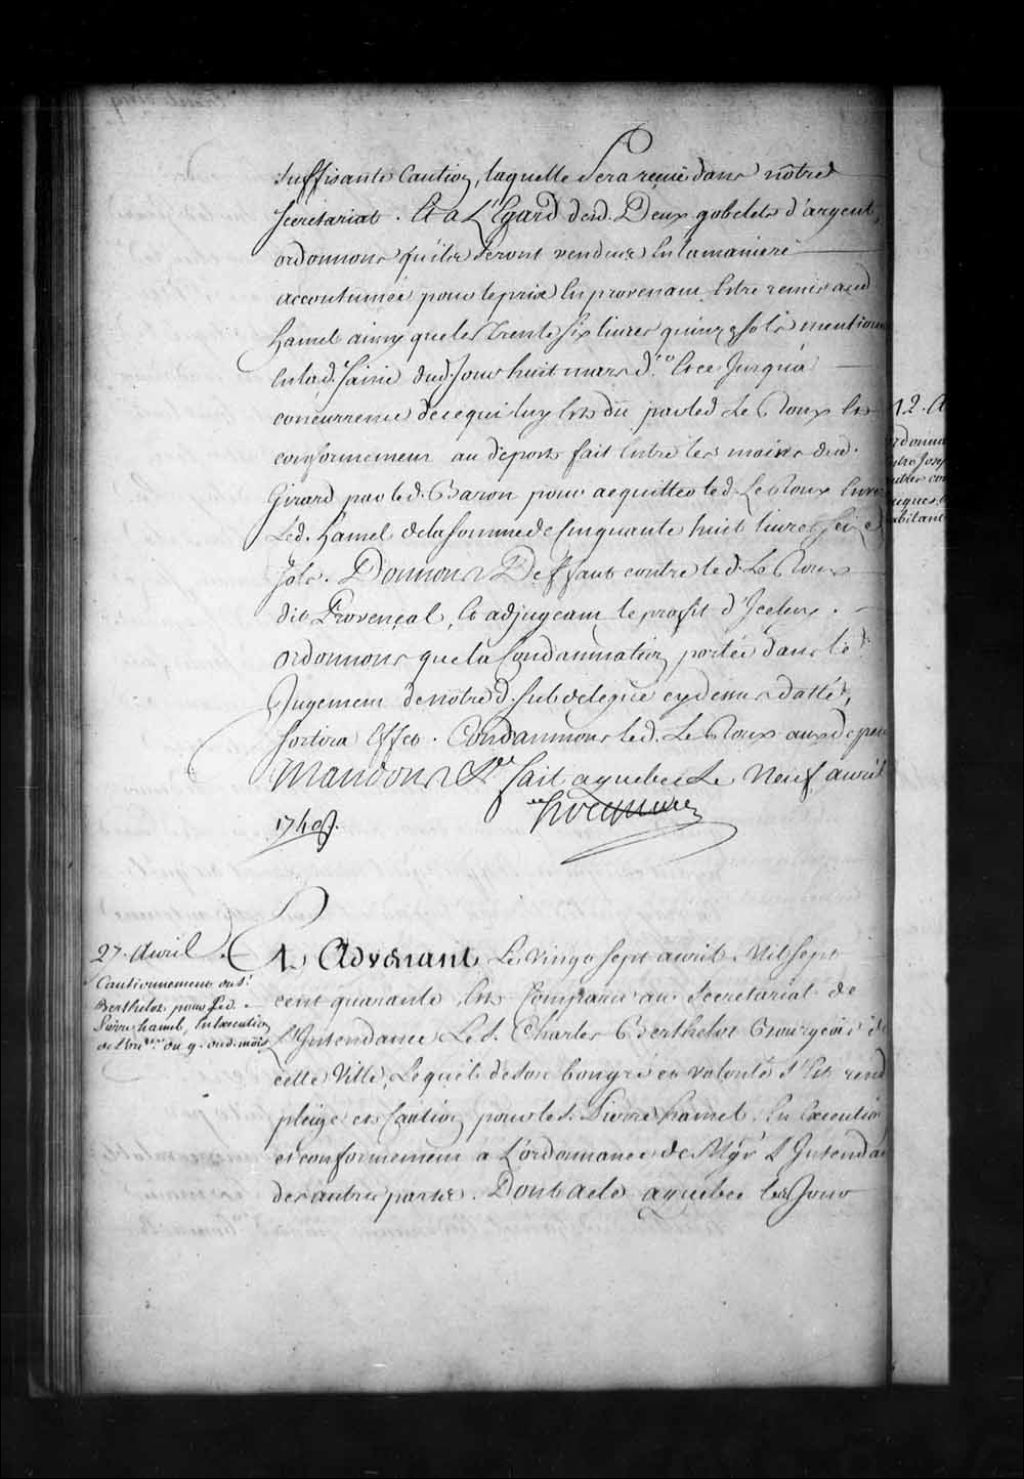 suffisante Caution, laquelle sera reçüe dans nôtre
secretariat. Et a L'Egard desd. Deux gobelets d'argent,
ordonnons qu'ils seront vendus en la maniere
accoutumée pour le prix en provenant Estre remis aud
hamel ainsy que les Trente six livres quinze sols mentionn
en lad. saisie dud. jour huit mars d.er Et ce Jusqu'à
concurrence de ce qui luy est dû par led Le Roux Et
conformement au depost fait entre les mains dud.
Girard par led. Baron pour acquitter led. Le Roux Enver
Led. hamel de la somme de Cinquante huit livres seize
sols. Donnons Deffaut contre led. Le Roux
dit Provençal, Et adjugeant le profit d'Iceluy.
ordonnons que la Condamnation portée dans le
Jugement de nôtre d. subdelegué cy dessus datté,
sortira Effet. Condamnons led. Le Roux aux depens
Mandons &a fait a quebec Le Neuf avril
1740.
hocquart
27. Avril
Cautionnement du s.r
Berthelot pour Led.
Pierre hamel, En Execution
de l'ord.ce du 9. dud. mois
Et Advenant Le vingt sept avril Mil sept
cent quarante, Est Comparu au Secretariat de
L'Intendance Le S. Charles Berthelot Bourgeois de
cette Ville, Lequel de son bon gré et volonté s'Est rend
pleige et Caution pour le s. Pierre hamel En Execution
et conformement à L'ordonnance de Mgr L'Intendan
des autres parts. Dont acte a quebec les Jour
12. A
rdonna
ntre Jose